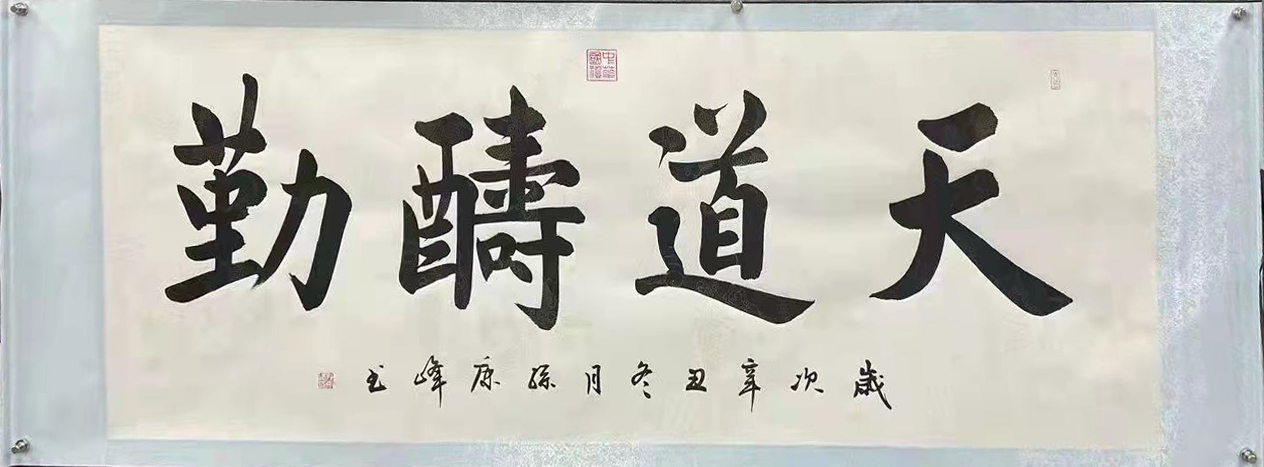 天道酬勤
歲次辛丑冬月孫康峰书